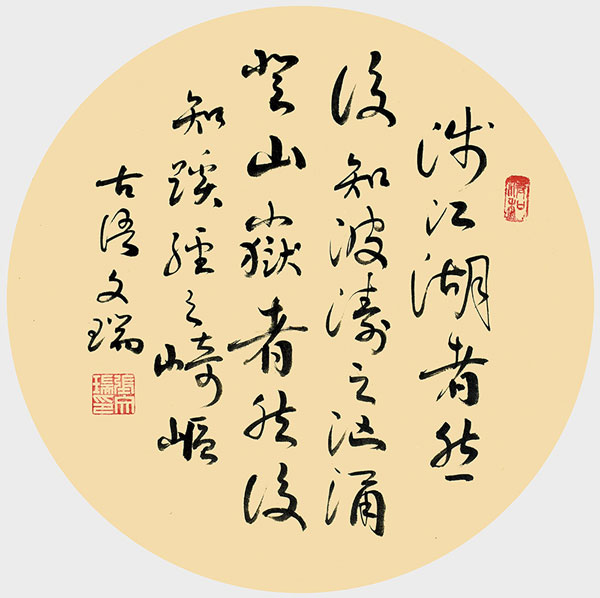 涉江湖者然
後知波濤之汹涌
登山嶽者然後
知蹊經之崎嶇
古語文瑞
張文瑞印